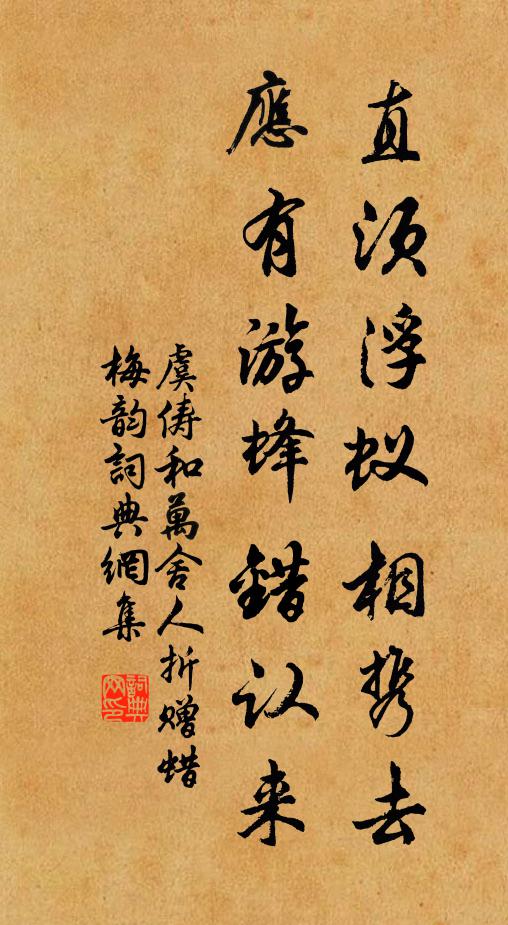 直须浮蚁相携去
應有游蜂錯认来
虞儔和萬舍人折赠蜡
梅韵詞典網集
詞典
网印